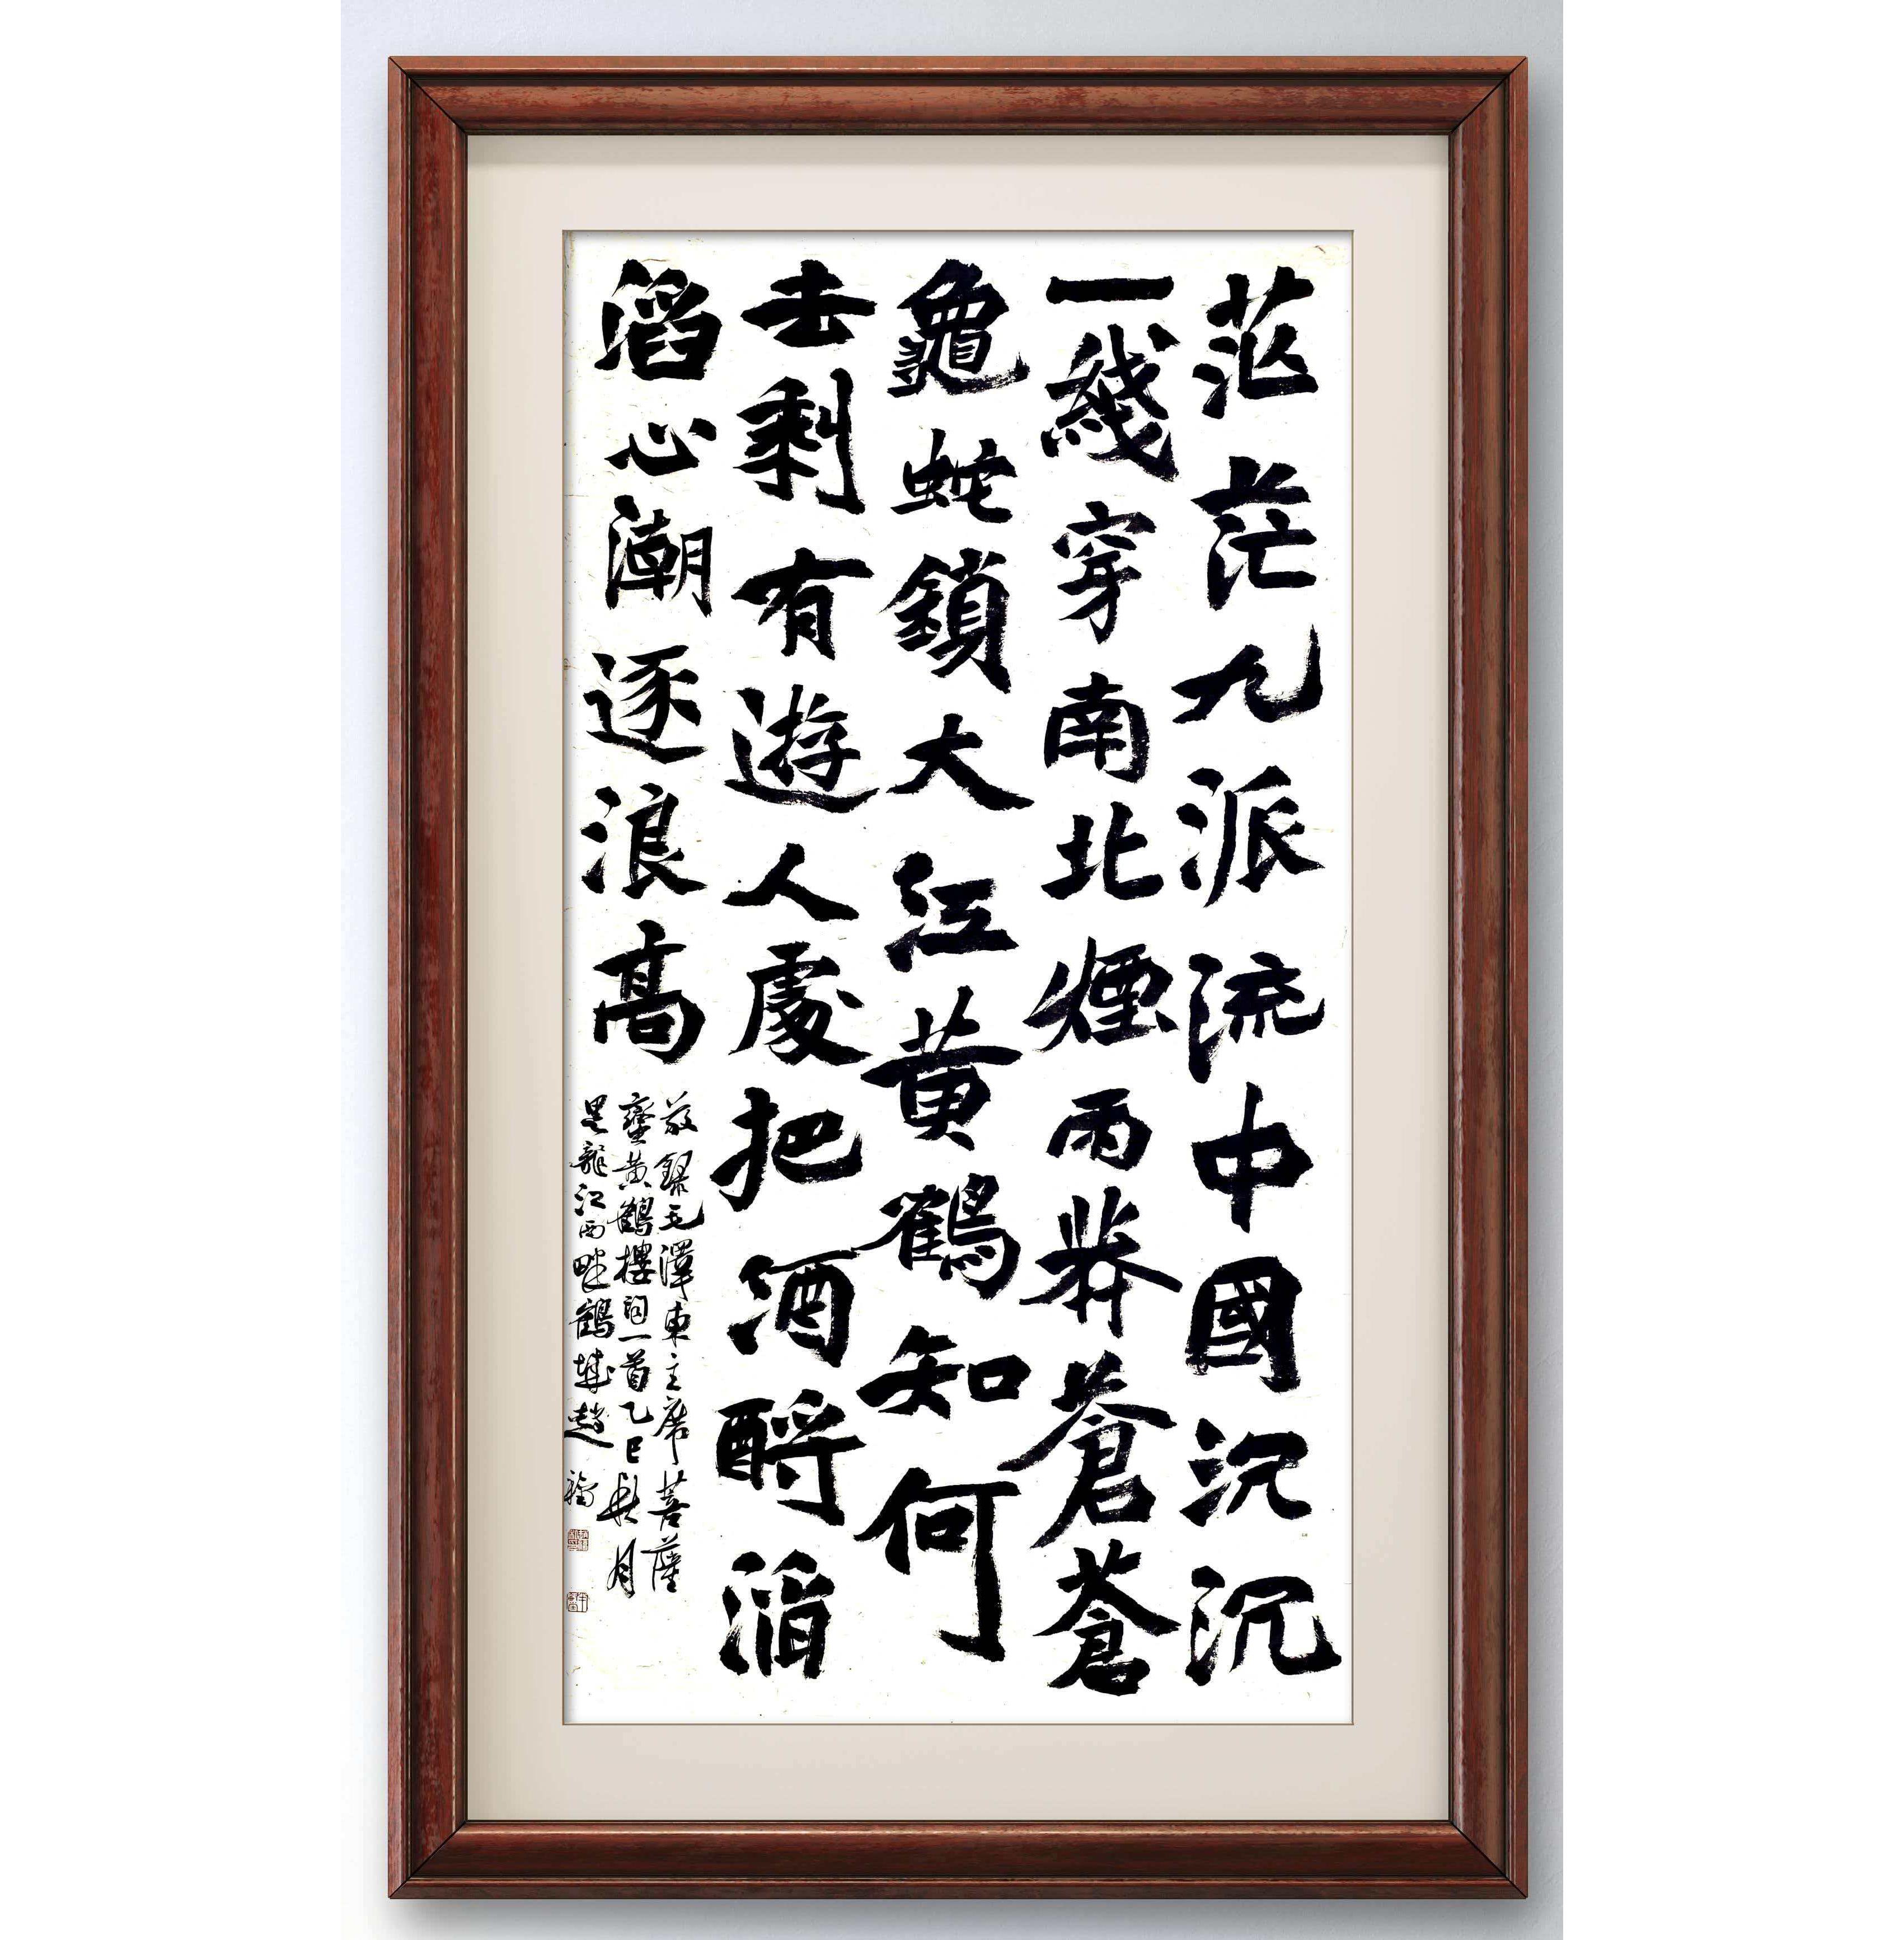 茫茫九派流中國沉沉
一綫穿南北煙雨莽蒼蒼
龜蛇鎖大江黄鶴知何
去剩有遊人處把酒酹滔
滔心潮逐浪高
敬録毛澤東主席菩薩
蠻黄鶴樓詞一首乙巳秋月
黑龍江西畔鶴城趙